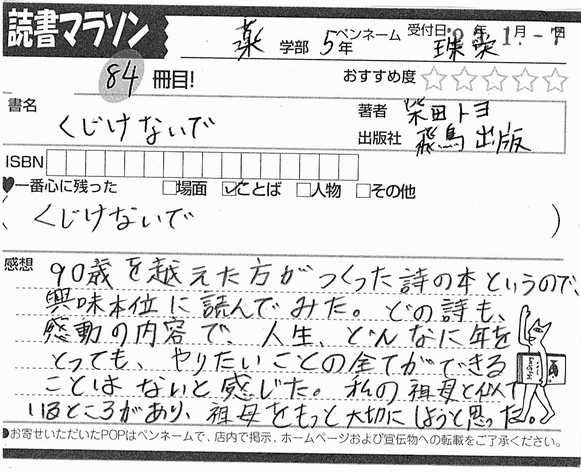 読書マラソン
薬 学部 5年 ペンネーム 珠栄 受付日 年1月-7日
84 冊目! おすすめ度☆☆☆☆☆
書名 くじけないで
著者 柴田トヨ
出版社 飛鳥出版
ISBN
♥一番心に残った □場面 ☑ことば □人物 □その他
( くじけないで )
感想 90歳を越えた方がつくった詩の本というので、
興味本位に読んでみた。どの詩も、
感動の内容で、人生、どんなに年を
とっても、やりたいことの全てができる
ことはないと感じた。私の祖母と似て
いるところがあり、祖母をもっと大切にしようと思った。
●お寄せいただいたPOPはペンネームで、店内で掲示、ホームページおよび宣伝物への転載をご了承ください。